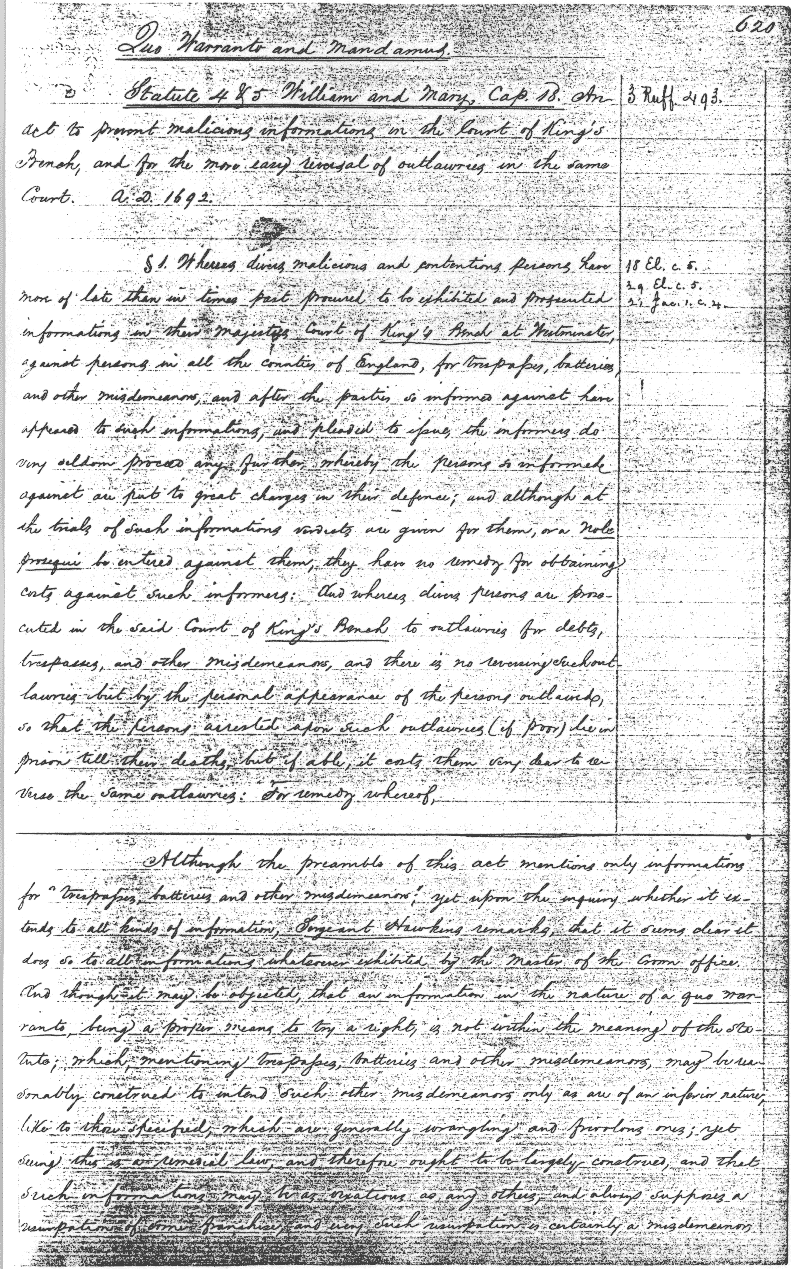 620
Quo Warranto and Mandamus.
Statute 4 & 5 William and Mary, Cap. 18. An
3 Ruff. 493.
act to prevent malicious informations in the Court of King's
Bench, and for the more easy reversal of outlawries in the same
Court. A.D. 1692.
§ 1. Whereas divers malicious and contentious persons have
18 El. c. 5.
more of late than in times past procured to be exhibited and prosecuted
29 El. c. 5.
21 Jac. 1. c. 4.
informations in their Majestys Court of King's Bench at Westminster,
against persons in all the counties of England, for trespasses, batteries,
and other misdemeanors, and after the parties so informed against have
appeared to such informations, and pleaded to issue, the informers do
very seldom proceed any further, whereby the persons so informed
against are put to great charges in their defence; and although at
the trials of such informations verdicts are given for them, or a nole
prosequi be entered against them, they have no remedy for obtaining
costs against such informers: And whereas divers persons are prose-
cuted in the said Court of King's Bench to outlawries for debts,
trespasses, and other misdemeanors, and there is no reversing such out-
lawries but by the personal appearance of the persons outlawed,
so that the persons arrested upon such outlawries (if poor) lie in
prison till their deaths, but if able, it costs them very dear to re-
verse the same outlawries: For remedy whereof,
Although the preamble of this act mentions only informations
for "trespasses, batteries and other misdemeanors", yet upon the inquiry whether it ex-
tends to all kinds of information, Sergeant Hawkins remarks, that it seems clear it
does so to all informations whatsoever exhibited by the Master of the Crown office.
And though it may be objected, that an information in the nature of a quo war-
ranto, being a proper means to try a right, is not within the meaning of the sta-
tute; which, mentioning trespasses, batteries and other misdemeanors, may be rea-
sonably construed to intend such other misdemeanors only as are of an inferior nature,
like to those specified, which are generally wrangling and frivolous ones; yet
seeing this is a remedial law, and therefore ought to be largely construed, and that
such informations may be as vexatious as any others, and always suppose a
usurpation of some franchise, and every such usurpation is certainly a misdemeanor